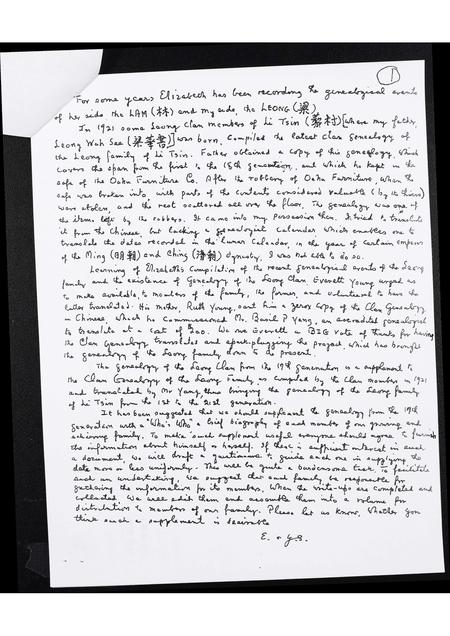 ①
For some years Elizabeth has been recording the genealogical events
of her side the LAM (林) and my side, the LEONG (梁).
In 1921 some Leong Clan members of Li Tsin (村) [where my father,
Leong Wah See (梁華書)] was born, compiled the latest Clan genealogy of
the Leong family of Li Tsin. Father obtained a copy of his genealogy, which
covers the span from the first to the 18th generation, and which he kept in the
safe of the Oahu Furniture Co. After the robbery of Oahu Furniture, when the
safe was broken into with parts of the contents considered valuable (by the thieves)
were stolen, and the rest scattered all over the floor, The genealogy was one of
the items left by the robbers. It came into my possession then. I tried to translate
it from the Chinese, but lacking a genealogical calendar which enables one to
translate the dates recorded in the lunar calendar, in the year of certain emperors
of the Ming (明朝) and Ching (清朝) dynasty, I was not able to do so.
Learning of Elizabeth's compilation of the recent genealogical events of the Leong
family and the existence of Genealogy of the Leong Clan Everett Young urged us
to make available to members of the family, the former, and volunteered to have the
latter translated. His mother, Ruth Young, sent him a xerox copy of the Clan Genealogy
in Chinese, which he commissioned Mr. Basil P Yang, an accredited genealogist
to translate at a cost of $200. We owe Everett a BIG vote of thanks for having
the Clan Genealogy translated and spark-plugging the project, which has brought
the genealogy of the Leong family down to the present.
The genealogy of the Leong Clan from the 19th generation is a supplement to
the Clan Genealogy of the Leong Family as compiled by the Clan members in 1921
and translated by Mr Yang, thus bringing the genealogy of the Leong family
of Li Tsin from the 1st to the 21st generation.
It has been suggested that we should supplement the genealogy from the 19th
generation with a "Who's Who" a brief biography of each member of our growing and
achieving family. To make such supplement useful everyone should agree to furnish
the information about himself or herself. If there is sufficient interest in such
a document, we will draft a questionnaire to guide each one in supplying the
data more or less uniformly. This will be quite a burdensome task. To facilitate
such an undertaking, we suggest that each family be responsible for
gathering the information for its members. When the write-ups are completed and
collected we will edit them and assemble them into a volume for
distribution to members of our family. Please let us know, whether you
think such a supplement is desirable